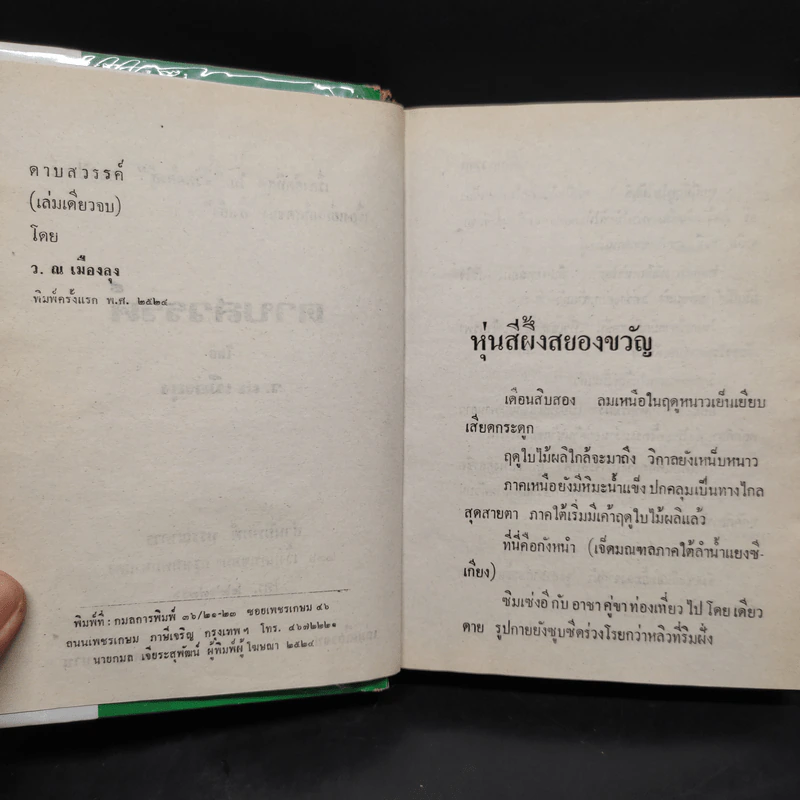 ดาบสวรรค์
(เล่มเดียวจบ)
โดย
ว. ณ เมืองลุง
พิมพ์ครั้งแรก พ.ศ. ๒๕๒๔
พิมพ์ที่ : กมลการพิมพ์ ๓๖/๒๑-๒๓ ซอยเพชรเกษม ๔๖
ถนนเพชรเกษม ภาษีเจริญ กรุงเทพฯ โทร. ๔๖๗๒๒๒๑
นายกมล เจียระสุพัฒน์ ผู้พิมพ์ผู้โฆษณา ๒๕๒๔
หุ่นสีผึ้งสยองขวัญ
เดือนสิบสอง ลมเหนือในฤดูหนาวเย็นเยียบ
เสียดกระดูก
ฤดูใบไม้ผลิใกล้จะมาถึง วิกาลยังเหน็บหนาว
ภาคเหนือยังมีหิมะน้ำแข็งปกคลุมเป็นทางไกล
สุดสายตา ภาคใต้เริ่มมีเค้าฤดูใบไม้ผลิแล้ว
ที่นี่คือกังหนำ (เจ็ดมณฑลภาคใต้ลำน้ำแยงซี-
เกียง)
ซิมเซ่งอี กับ อาชา คู่ขา ท่องเที่ยว ไป โดย เดียว
ดาย รูปกายยังซูบซีดร่วงโรยกว่าหลิวที่ริมฝั่ง